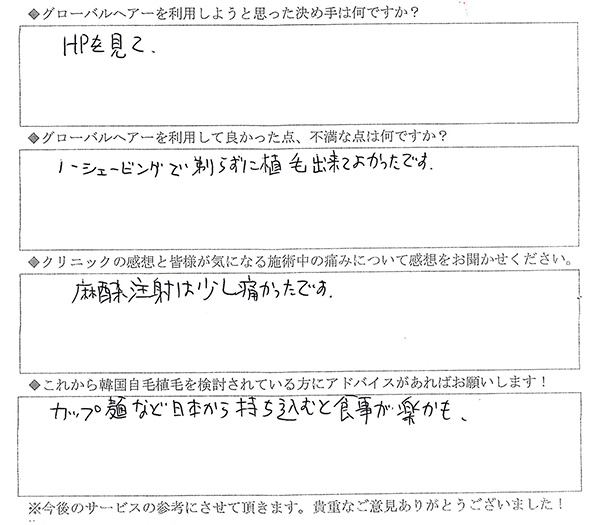 ◆グローバルヘアーを利用しようと思った決め手は何ですか？
HPを見て、
◆グローバルヘアーを利用して良かった点、不満な点は何ですか？
ノーシェービングで剃らずに植毛出来てよかったです.
◆クリニックの感想と皆様が気になる施術中の痛みについて感想をお聞かせください。
麻酔注射は少し痛かったです.
◆これから韓国自毛植毛を検討されている方にアドバイスがあればお願いします！
カップ麺など日本から持ち込むと食事が楽かも、
※今後のサービスの参考にさせて頂きます。貴重なご意見ありがとうございました！